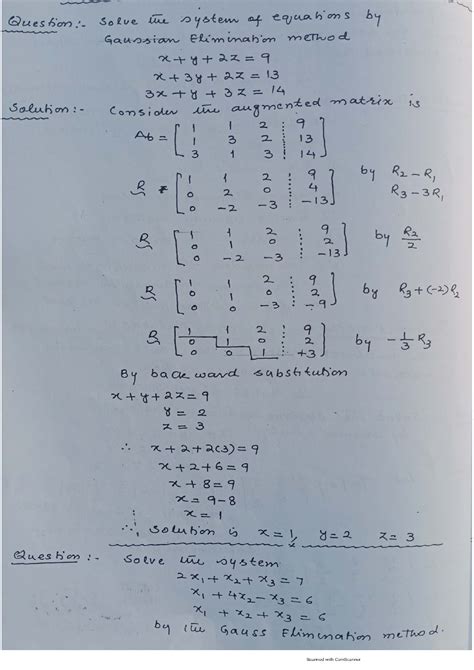 Question:- Solve the system of equations by
Gaussian Elimination method
x+y+2z=9
x+3y+2z=13
3x+y+3z=14
Solution:- Consider the augmented matrix is
Ab= [ 1 1 2 ⋮ 9
1 3 2 ⋮ 13
3 1 3 ⋮ 14 ]
R ~ [ 1 1 2 ⋮ 9
0 2 0 ⋮ 4
0 -2 -3 ⋮ -13 ] by R2-R1
R3-3R1
R ~ [ 1 1 2 ⋮ 9
0 1 0 ⋮ 2
0 -2 -3 ⋮ -13 ] by R2/2
R ~ [ 1 1 2 ⋮ 9
0 1 0 ⋮ 2
0 0 -3 ⋮ -9 ] by R3+(-2)R2
R ~ [ 1 1 2 ⋮ 9
0 1 0 ⋮ 2
0 0 1 ⋮ +3 ] by -1/3 R3
By backward substitution
x+y+2z=9
y=2
z=3
∴ x+2+2(3)=9
x+2+6=9
x+8=9
x=9-8
x=1
∴ Solution is x=1, y=2 z=3
Question:- Solve the system
2x1+x2+x3=7
x1+4x2-x3=6
x1+x2+x3=6
by the Gauss Elimination method.
Scanned with CamScanner